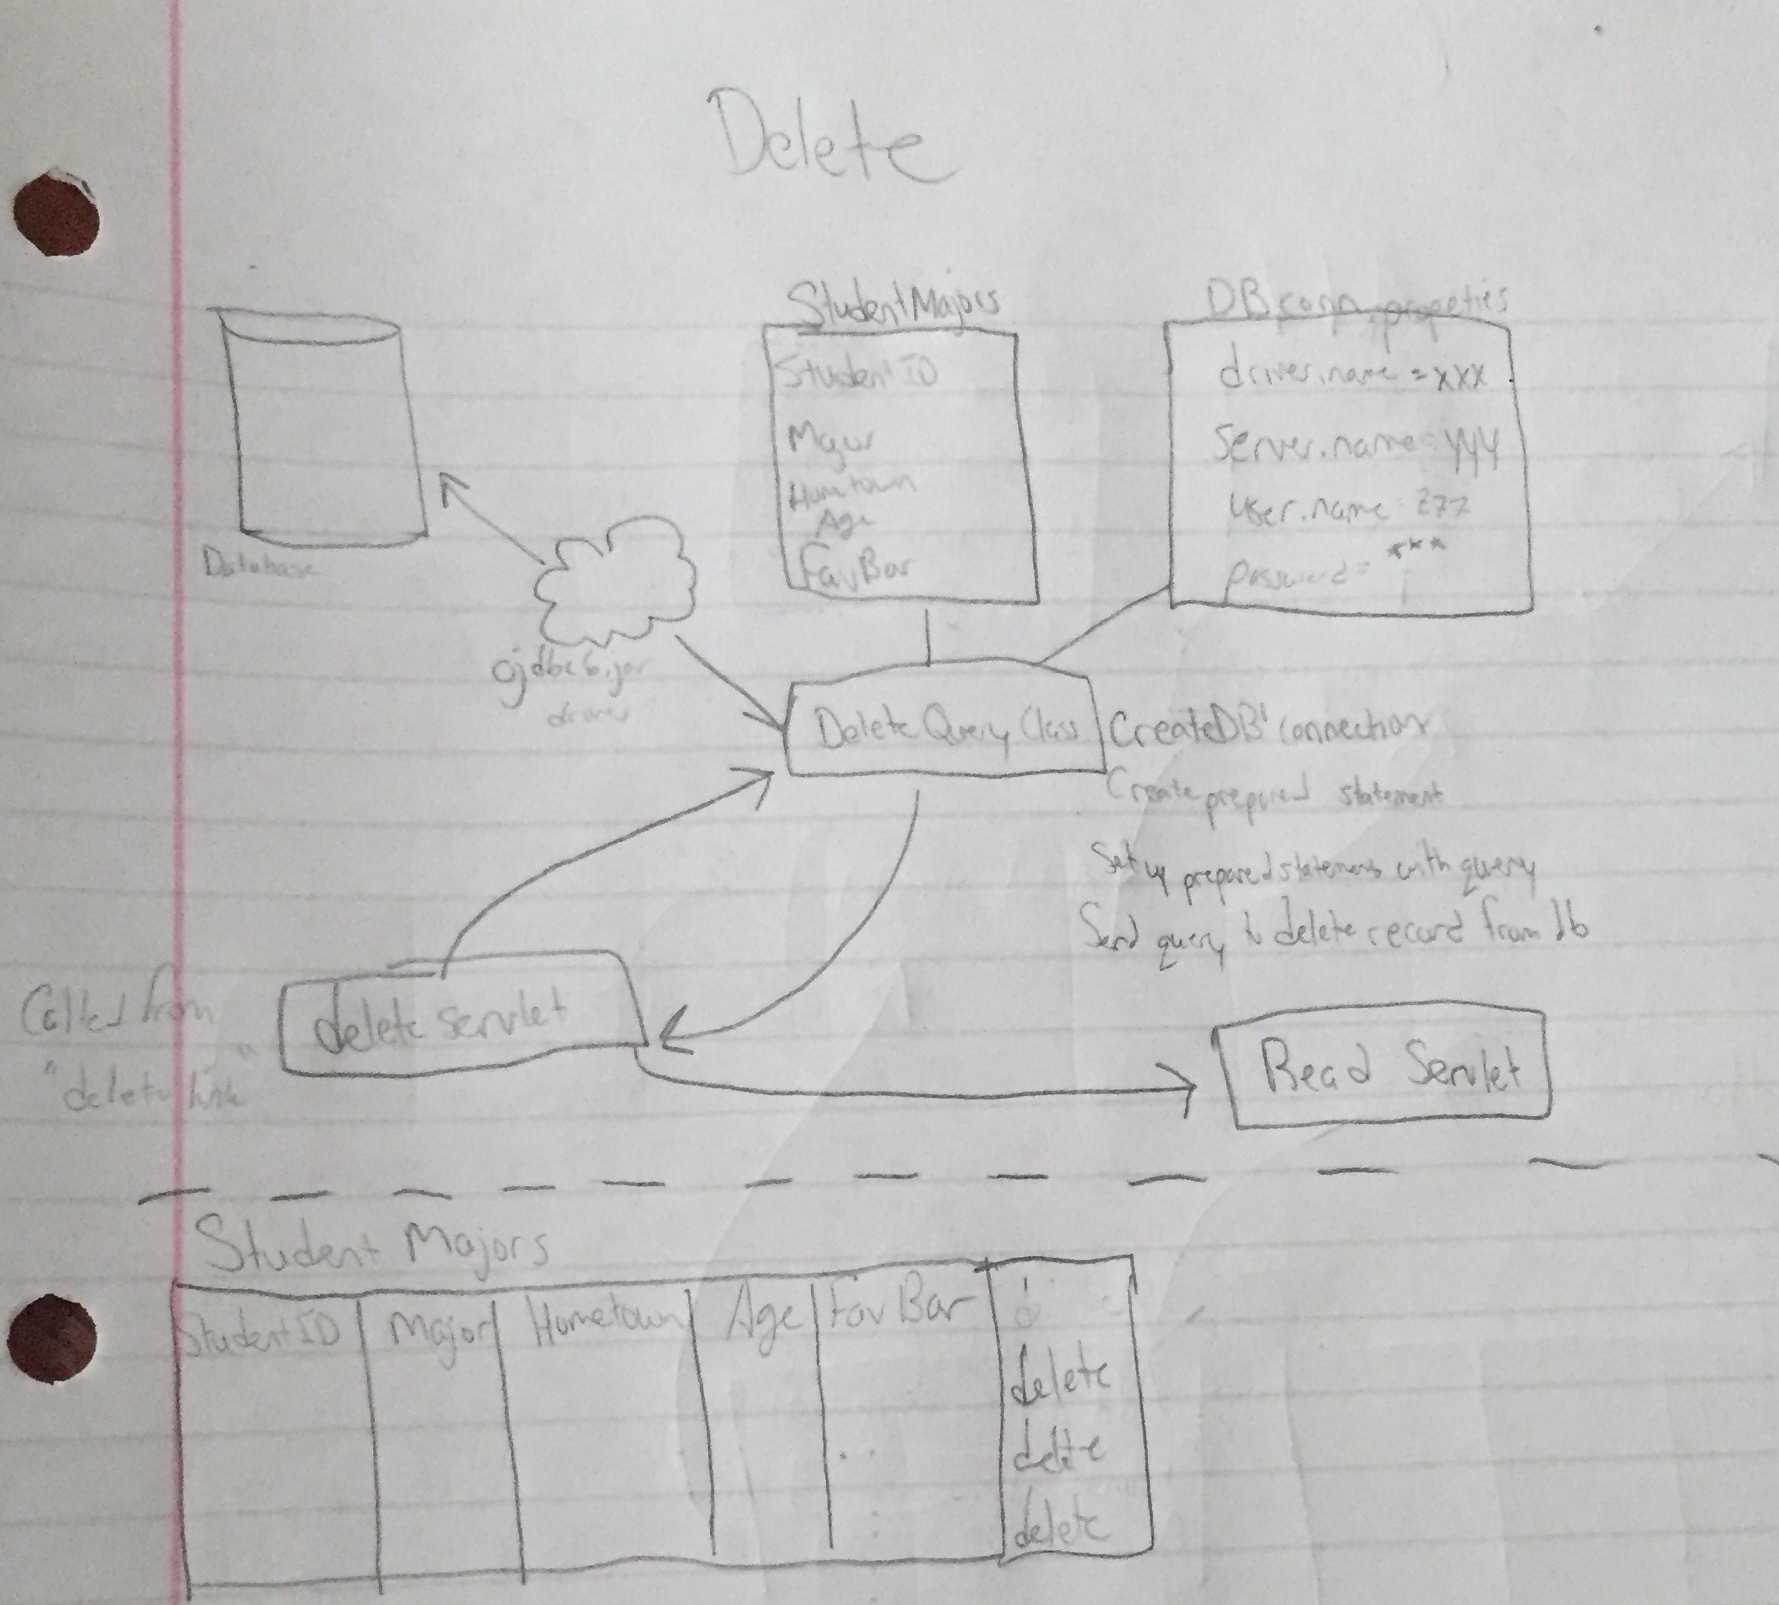 Delete
StudentMajors
DBconn.propeties
StudentID
Major
Homtown
Age
FavBar
driver.name = xxx
Server.name = yyy
User.name zzz
password = ***
Database
ojdbc6.jar
driver
Delete Query Class
Create DB connection
Create prepared statement
Set up prepared statements with query
Send query to delete record from db
Called from
"delete link"
delete servlet
Read Servlet
Student Majors
StudentID Major Hometown Age Fav Bar
delete
delete
delete